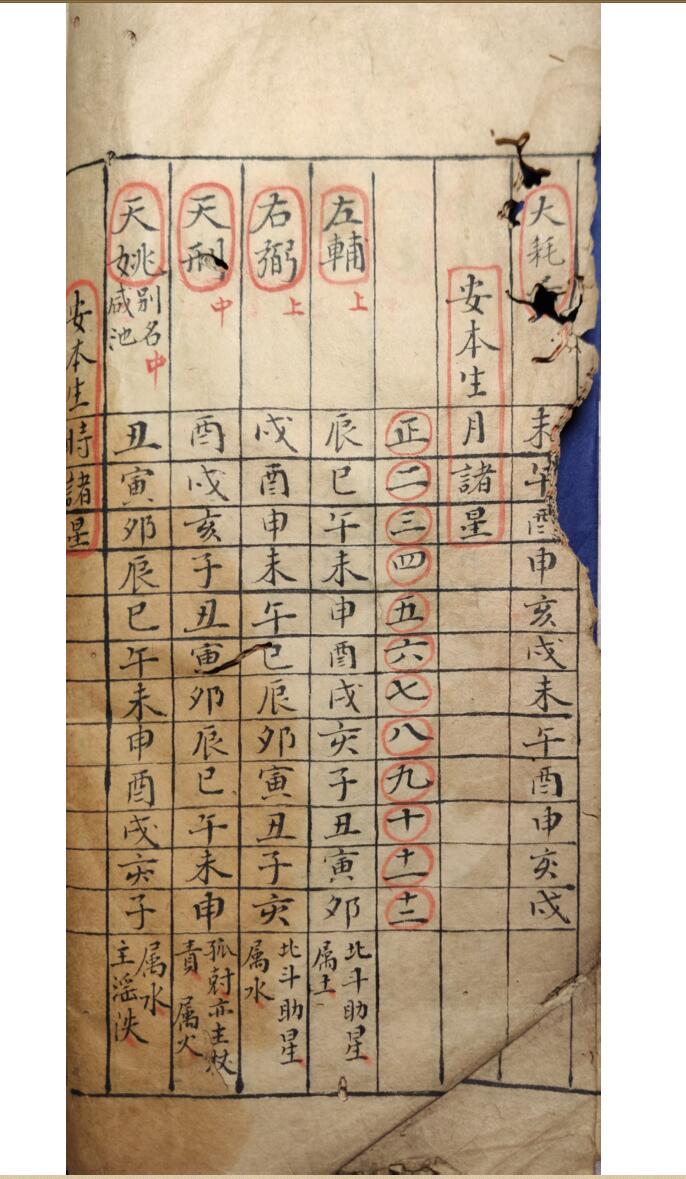 大耗
未午酉申亥戌未午酉申亥戌
安本生月諸星
正二三四五六七八九十十一十二
左輔
上
辰巳午未申酉戌亥子丑寅卯
北斗助星
属土
右弼
上
戌酉申未午巳辰卯寅丑子亥
北斗助星
属水
天刑
中
酉戌亥子丑寅卯辰巳午未申
孤尅亦主杖
責 属火
天姚
别名
咸池
中
丑寅卯辰巳午未申酉戌亥子
属水
主淫泆
安本生時諸星